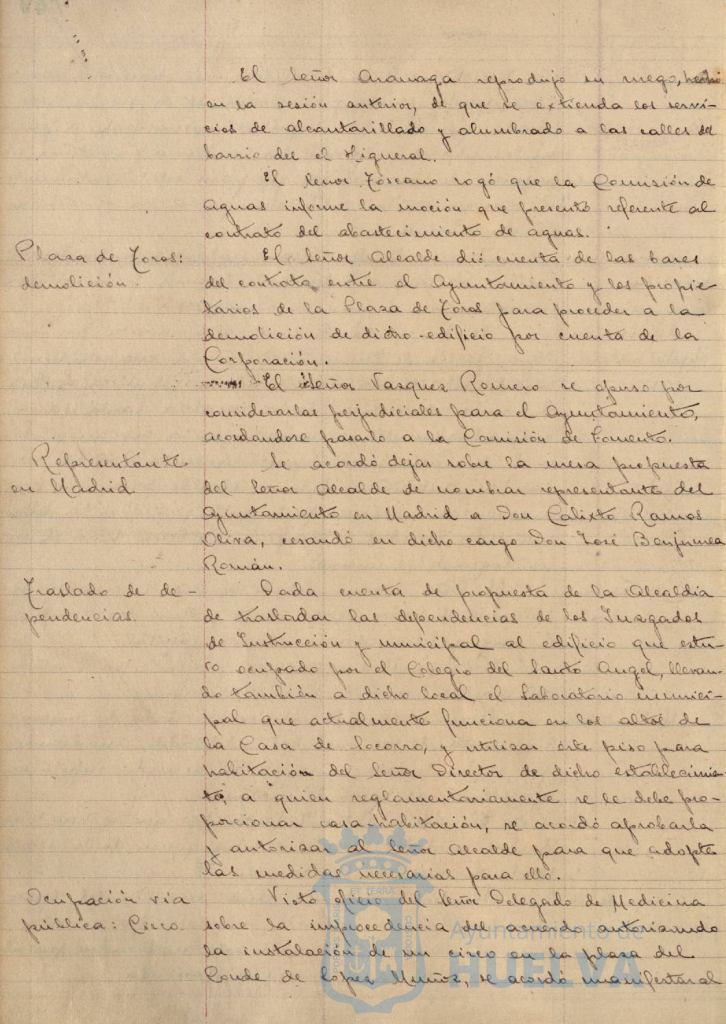 El Señor Aranaga reprodujo su ruego, hecho
en la sesión anterior, de que se extienda los servi-
cios de alcantarillado y alumbrado a las calles del
barrio del el Higueral.
El Señor Toscano rogó que la Comisión de
Aguas informe la moción que presentó referente al
contrato del abastecimiento de aguas.
Plaza de Toros:
demolición.
El Señor Alcalde dió cuenta de las bases
del contrato entre el Ayuntamiento y los propie-
tarios de la Plaza de Toros para proceder a la
demolición de dicho edificio por cuenta de la
Corporación.
El Señor Vazquez Romero se opuso por
considerarlas perjudiciales para el Ayuntamiento,
acordandose pasarlo a la Comisión de Fomento.
Representante
en Madrid
Se acordó dejar sobre la mesa propuesta
del Señor Alcalde de nombrar representante del
Ayuntamiento en Madrid a Don Calixto Ramos
Oliva, cesando en dicho cargo Don José Benjumea
Román.
Traslado de de-
pendencias.
Dada cuenta de propuesta de la Alcaldía
de trasladar las dependencias de los Juzgados
de Instrucción y municipal al edificio que estu-
vo ocupado por el Colegio del Santo Angel, llevan-
do también a dicho local el Laboratorio munici-
pal que actualmente funciona en los altos de
la Casa de Socorro, y utilizar este piso para
habitación del Señor Director de dicho establecimien-
to, a quien reglamentariamente se le debe pro-
porcionar casa-habitación, se acordó aprobarla
y autorizar al Señor Alcalde para que adopte
las medidas necesarias para ello.
Ocupación via
pública: Circo.
Visto oficio del Señor Delegado de Medicina
sobre la improcedencia del acuerdo autorizando
la instalación de un circo en la plaza del
Conde de López Muñoz, se acordó manifestar al
Ayuntamiento de
HUELVA